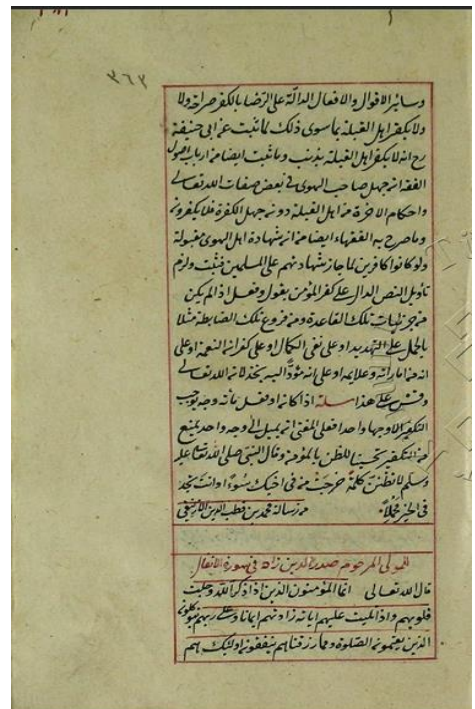 ٣٦٣
وسائر الاقوال والافعال الدالة على الرضا بالكفر صراحة ولا
ولا يكفر اهل القبلة بما سوى ذلك لما ثبت عن ابى حنيفة
رح انه لا يكفر اهل القبلة بذنب وما ثبت ايضا من ارباب اصول
الفقه ان جهل صاحب الهوى فى بعض صفات الله تعالى
واحكام الآخرة من اهل القبلة دون جهل الكفرة فلا يكفرونه
وما صرح به الفقهاء ايضا من ان شهادة اهل الهوى مقبولة
ولو كانوا كافرين لما جاز شهادتهم على المسلمين فثبت ولزم
تأويل النص الدال على كفر المؤمن بقول وفعل اذا لم يكن
من جزئيات تلك القاعدة ومن فروع تلك الضابطة مثلا
بالحمل على التهديد او على نفى الكمال او على كفران النعمة او على
انه من اماراته وعلائمه او على انه مؤد اليه بخذلان الله تعالى
وقس على هذا مسئلة اذا كان او فعل مأته وجه يوجب
التكفير الا وجها واحدا فعلى المفتى ان يميل الى وجه واحد يمنع
من التكفير تحسينا للظن بالمؤمن وقال النبى صلى الله تعالى عليه
وسلم لا تظنن كلمة خرجت من فى اخيك سوءا وانت تجد
فى الخير محملا من رسالة محمد بن قطب الدين الازنيقى
للمولى المرحوم صدر الدين زاده فى سورة الانفال
قال الله تعالى انما المؤمنون الذين اذا ذكر الله وجلت
قلوبهم واذا تليت عليهم اياته زادتهم ايمانا وعلى ربهم يتوكلون
الذين يقيمون الصلوة ومما رزقناهم ينفقون اولئك هم